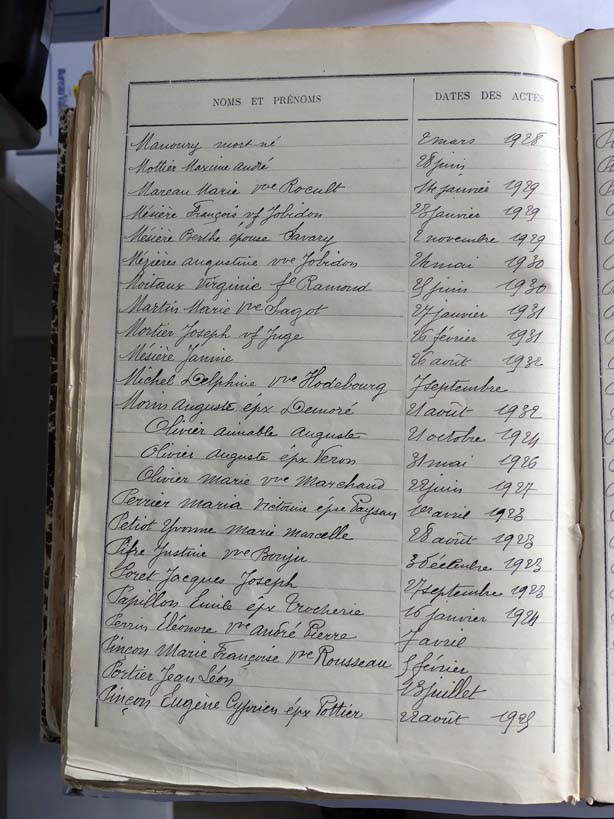 NOMS ET PRÉNOMS DATES DES ACTES
Manoury mort-né 2 mars 1928
Mottier Maxime André 28 juin
Mareau Marie vve Rocult 14 janvier 1929
Mésière François vf Jobidon 23 janvier 1929
Mésière Berthe épouse Savary 2 novembre 1929
Mézières augustine vve Jobidon 24 mai 1930
Moitaux Virginie fe Ramond 25 juin 1930
Martin Marie Vve Sagot 27 janvier 1931
Mortier Joseph vf Juge 26 février 1931
Mésière Janine 26 août 1932
Michel Delphine vve Hodebourg 7 septembre
Morin auguste épx Demoré 21 août 1932
Olivier aimable auguste 21 octobre 1924
Olivier auguste épx Veron 31 mai 1926
Olivier Marie vve Marchand 22 juin 1927
Perrier Maria Victorine épse Paysan 1er avril 1923
Petiot Yvonne Marie Marcelle 28 août 1923
Pifre Justine vve Bouju 3 décembre 1923
Poret Jacques Joseph 27 septembre 1923
Papillon Emile épx Trocherie 16 janvier 1924
Perrin Eléonore Vve André Pierre 7 avril
Pinçon Marie Françoise vve Rousseau 5 février
Portier Jean Léon 23 juillet
Pinçon Eugène Cyprien épx Pottier 22 août 1925